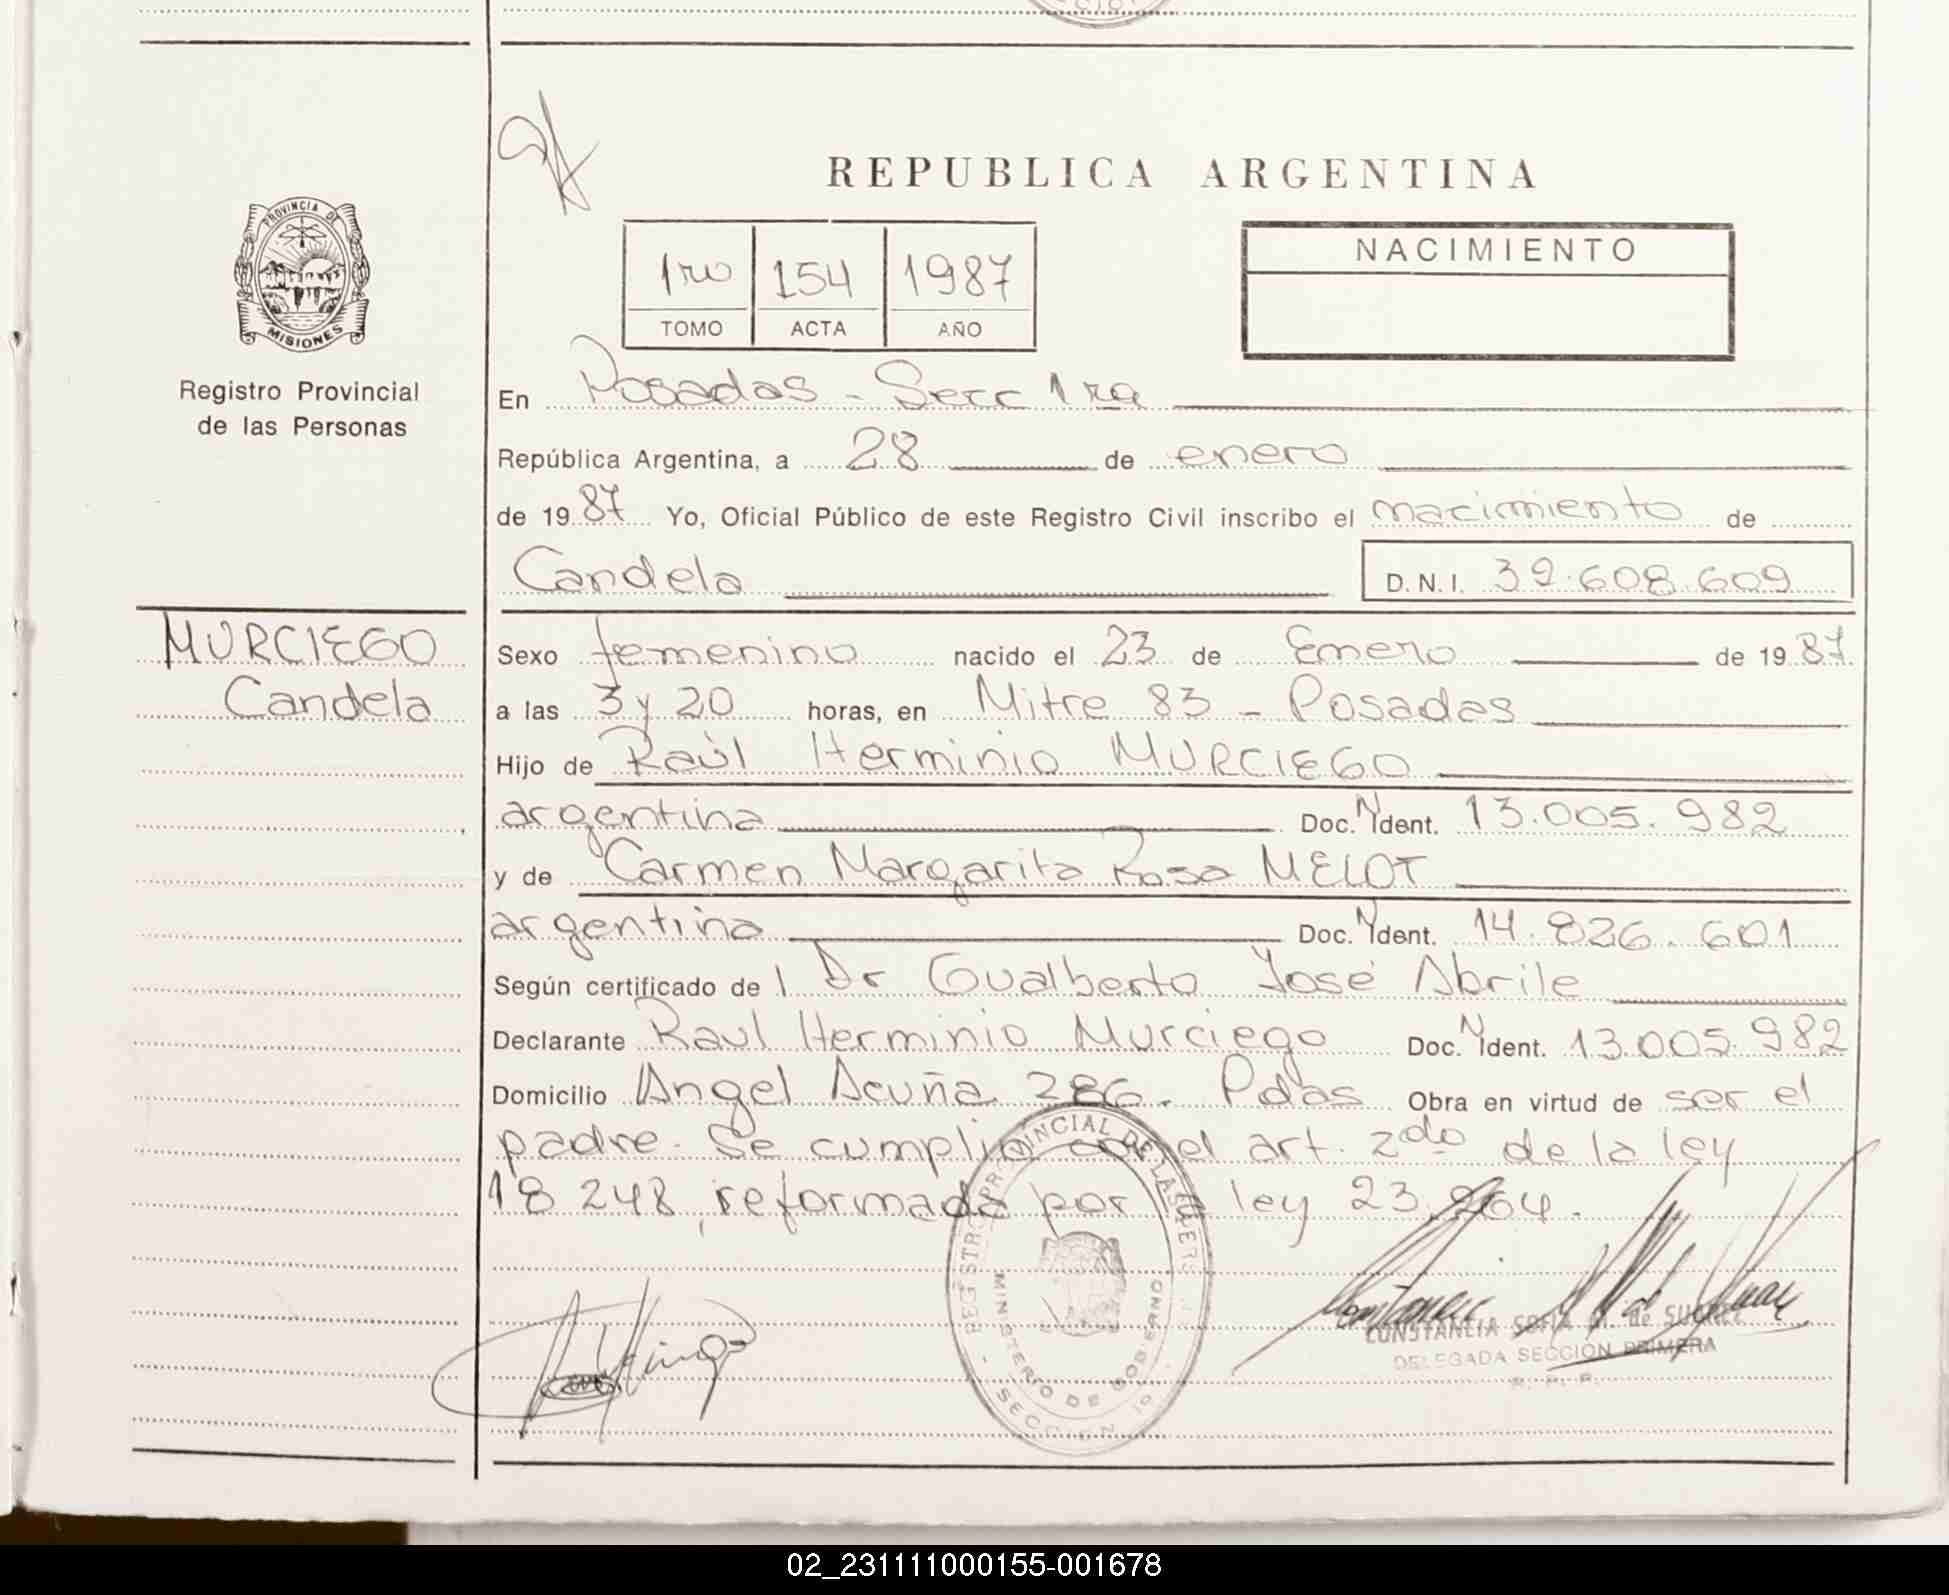 REPUBLICA ARGENTINA
PROVINCIA DE
MISIONES
Registro Provincial
de las Personas
1ro 154 1987
TOMO ACTA AÑO
NACIMIENTO
En Posadas - Secc 1ra
República Argentina, a 28 de enero
de 1987 Yo, Oficial Público de este Registro Civil inscribo el nacimiento de
Candela D.N.I. 32.608.609
MURCIEGO
Candela
Sexo femenino nacido el 23 de Enero de 1987
a las 3 y 20 horas, en Mitre 83 - Posadas
Hijo de Raúl Herminio MURCIEGO
argentina Doc. N Ident. 13.005.982
y de Carmen Margarita Rosa MELOT
argentina Doc. N Ident. 14.826.601
Según certificado de l Dr Gualberto José Abrile
Declarante Raul Herminio Murciego Doc. N Ident. 13.005.982
Domicilio Angel Acuña 286. Pdas Obra en virtud de ser el
padre. Se cumplio con el art. 2do de la ley
18 248, reformada por la ley 23.264.
REGISTRO PROVINCIAL DE LAS PERS
MINISTERIO DE GOBIERNO
- SECCION 1º
CONSTANCIA SOFIA M. de SUAREZ
DELEGADA SECCION PRIMERA
R. P. P.
02_231111000155-001678